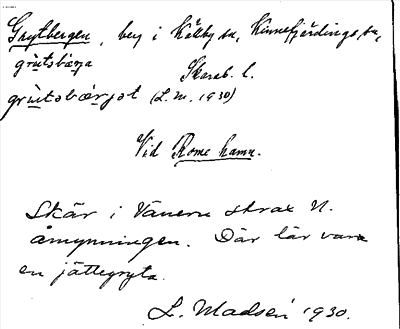 Grytbergen, berg i Källby sn, Kinnefjärdings hd,
grùtsbæ̀rja Skarab. l.
grùtsbæ̀rjət (L. M. 1930)
Vid Rome hamn.
Skär i Vänern strax N.
åmynningen. Där lär vara
en jättegryta.
L. Madsén 1930.